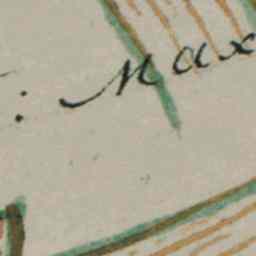 : Max